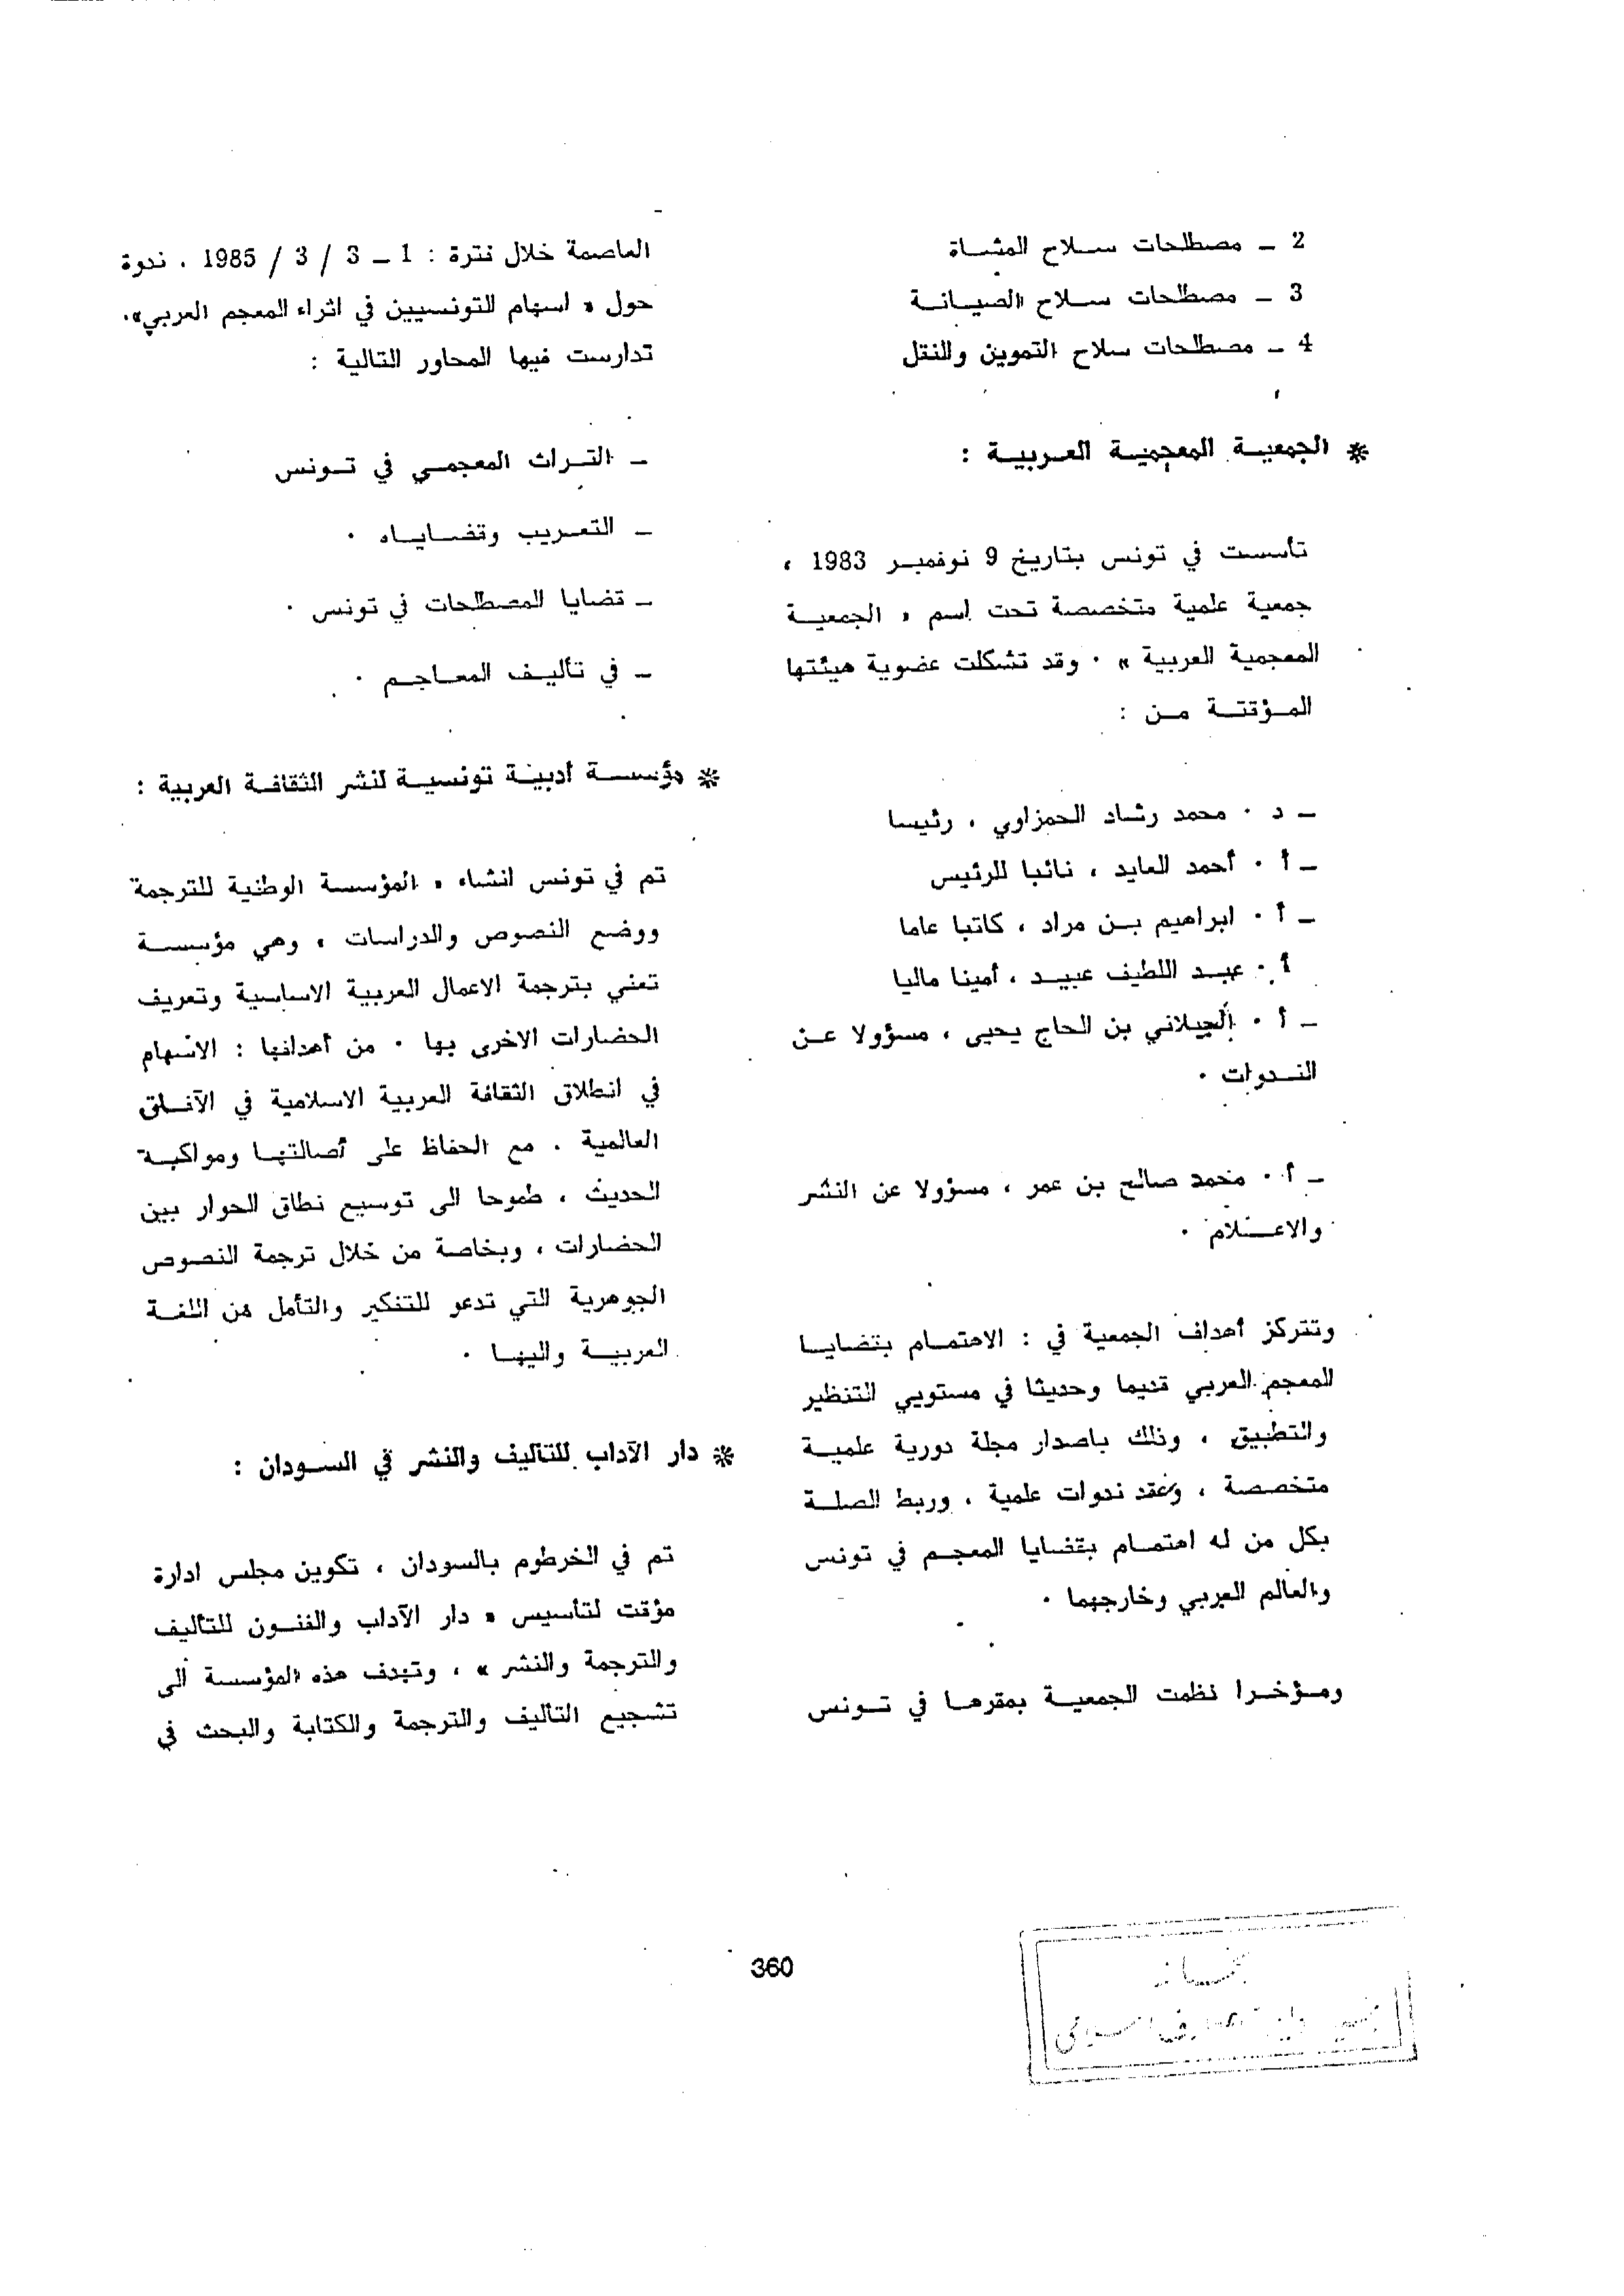 2 ـ مصطلحات سلاح المشاة
3 ـ مصطلحات سلاح الصيانة
4 ـ مصطلحات سلاح التموين والنقل
* الجمعية المعجمية العربية :
تأسست في تونس بتاريخ 9 نوفمبر 1983 ،
جمعية علمية متخصصة تحت اسم « الجمعية
المعجمية العربية » . وقد تشكلت عضوية هيئتها
المؤقتة من :
ـ د . محمد رشاد الحمزاوي ، رئيسا
ـ أ . أحمد العايد ، نائبا للرئيس
ـ أ . ابراهيم بن مراد ، كاتبا عاما
أ . عبد اللطيف عبيد ، أمينا ماليا
ـ أ . الجيلاني بن الحاج يحيى ، مسؤولا عن
الندوات .
ـ أ . محمد صالح بن عمر ، مسؤولا عن النشر
والاعلام .
وتتركز أهداف الجمعية في : الاهتمام بقضايا
المعجم العربي قديما وحديثا في مستويي التنظير
والتطبيق ، وذلك باصدار مجلة دورية علمية
متخصصة ، وعقد ندوات علمية ، وربط الصلة
بكل من له اهتمام بقضايا المعجم في تونس
والعالم العربي وخارجهما .
ومؤخرا نظمت الجمعية بمقرها في تونس
العاصمة خلال فترة : 1 ـ 3 / 3 / 1985 ، ندوة
حول « اسهام التونسيين في اثراء المعجم العربي».
تدارست فيها المحاور التالية :
ـ التراث المعجمي في تونس
ـ التعريب وقضاياه .
ـ قضايا المصطلحات في تونس .
ـ في تأليف المعاجم .
* مؤسسة أدبية تونسية لنشر الثقافة العربية :
تم في تونس انشاء « المؤسسة الوطنية للترجمة
ووضع النصوص والدراسات ، وهي مؤسسة
تعني بترجمة الاعمال العربية الاساسية وتعريف
الحضارات الاخرى بها . من أهدافها : الاسهام
في انطلاق الثقافة العربية الاسلامية في الآفاق
العالمية ، مع الحفاظ على أصالتها ومواكبة
الحديث ، طموحا الى توسيع نطاق الحوار بين
الحضارات ، وبخاصة من خلال ترجمة النصوص
الجوهرية التي تدعو للتفكير والتأمل من اللغة
العربية واليها .
* دار الآداب للتاليف والنشر في السودان :
تم في الخرطوم بالسودان ، تكوين مجلس ادارة
مؤقت لتأسيس « دار الآداب والفنون للتأليف
والترجمة والنشر » ، وتهدف هذه المؤسسة الى
تشجيع التأليف والترجمة والكتابة والبحث في
360